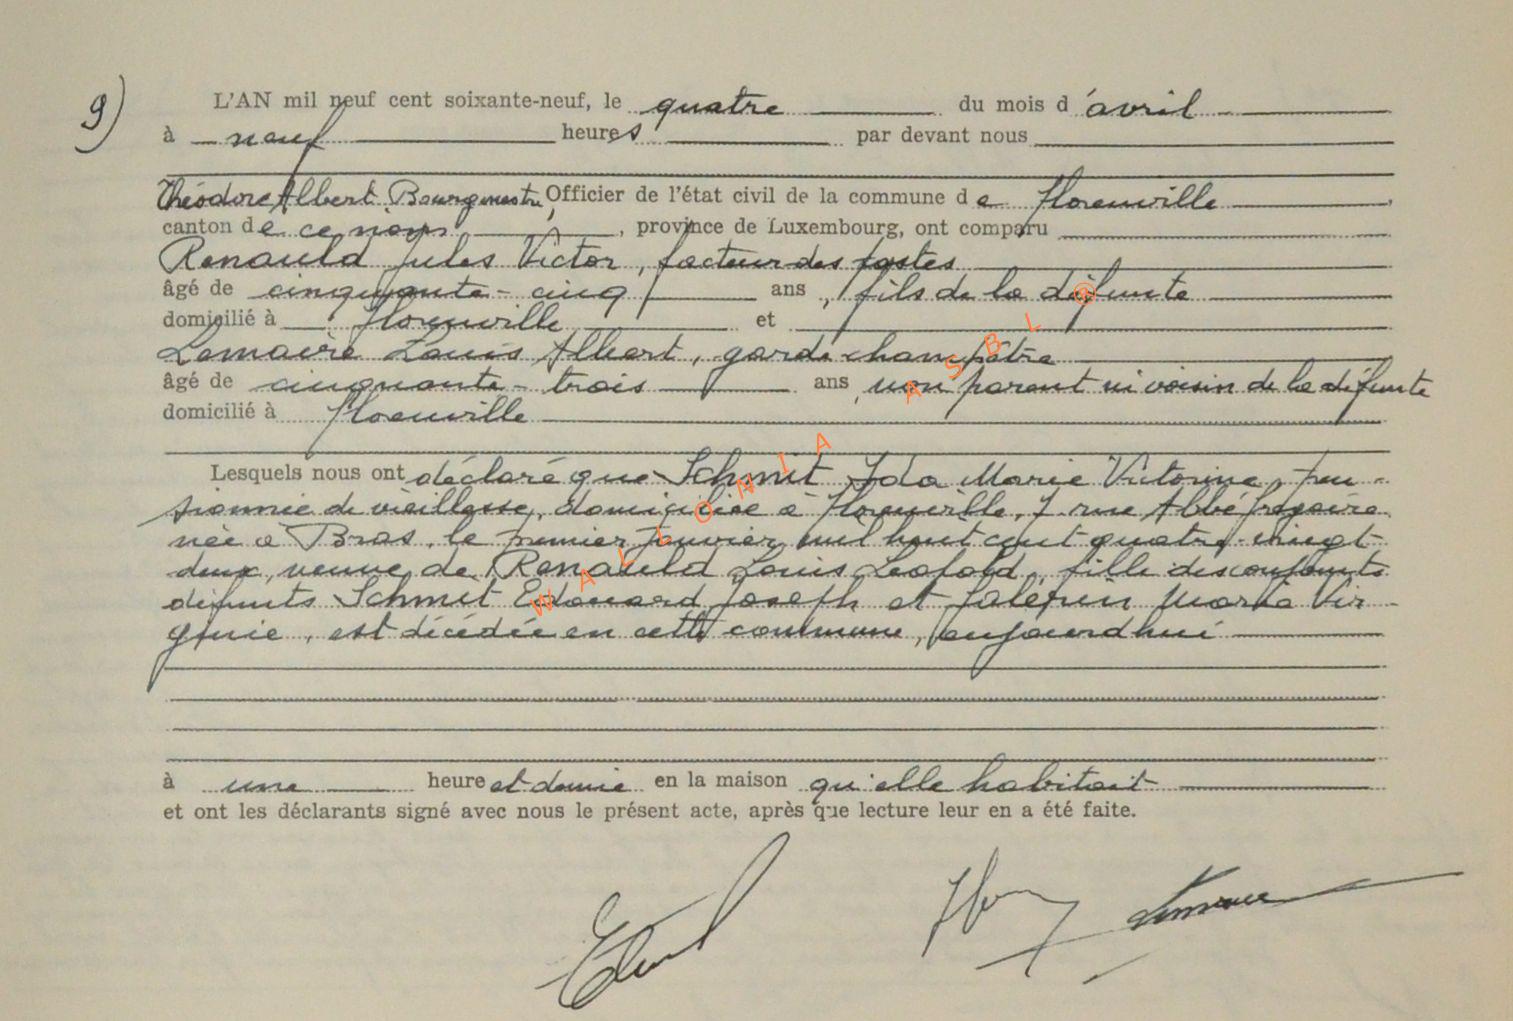 9)
L'AN mil neuf cent soixante-neuf, le quatre du mois d'avril
à neuf heures par devant nous
Théodore Albert, Bourgmestre, Officier de l'état civil de la commune de Florenville,
canton de ce nom, province de Luxembourg, ont comparu
Renauld Jules Victor, facteur des postes
âgé de cinquante-cinq ans, fils de la défunte
domicilié à Florenville et
Lemaire Louis Albert, garde champêtre
âgé de cinquante-trois ans, non parent ni voisin de la défunte
domicilié à Florenville
Lesquels nous ont déclaré que Schmit Ida Marie Victorine, pen-
sionnée de vieillesse, domiciliée à Florenville, 7 rue Abbé
née à Bras, le premier janvier mil huit cent quatre-vingt-
deux, veuve de Renauld Louis Léopold, fille des conjoints
défunts Schmit Edouard Joseph et Marie Vir-
ginie, est décédée en cette commune, aujourd'hui
à une heure et demie en la maison qu'elle habitait
et ont les déclarants signé avec nous le présent acte, après que lecture leur en a été faite.
WALLONIA ASBL ®